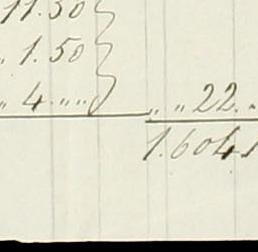 11.50
„ 1.50
„ 4 „ „ „ „ 22. „
1.6041